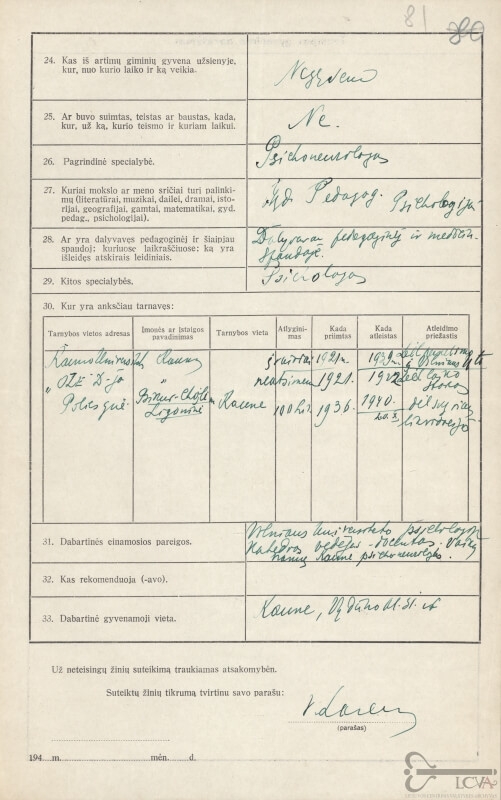 81
24. Kas iš artimų giminių gyvena užsienyje,
kur, nuo kurio laiko ir ką veikia.
25. Ar buvo suimtas, teistas ar baustas, kada,
kur, už ką, kurio teismo ir kuriam laikui.
Ne.
26. Pagrindinė specialybė.
Psichoneurologas
27. Kuriai mokslo ar meno sričiai turi palinki-
mą (literatūrai, muzikai, dailei, dramai, isto-
rijai, geografijai, gamtai, matematikai, gyd.
pedag., psichologijai).
Gyd. Pedagog. Psichologijai
28. Ar yra dalyvavęs pedagoginėj ir šiaipjau
spaudoj: kuriuose laikraščiuose; ką yra
išleidęs atskirais leidiniais.
Dalyvavau pedagoginėj ir medicin.
spaudoje.
29. Kitos specialybės.
Psichologas
30. Kur yra anksčiau tarnavęs:
Tarnybos vietos adresas
Įmonės ar įstaigos pavadinimas
Tarnybos vieta
Atlyginimas
Kada priimtas
Kada atleistas
Atleidimo priežastis
Kauno Universitetas Kaune įvairiai 1921 m. 1939 m.
„OZE" D-ja " 1921. 1922 dėl laiko
stokos
Bikur-Cholim Kaune 100 lit. 1936. 1940.
Ligoninė
31. Dabartinės einamosios pareigos.
Vilniaus Universiteto psichologijos
Katedros vedėjas - docentas. Vaikų
namų Kaune psichoneurologas.
32. Kas rekomenduoja (-avo).
33. Dabartinė gyvenamoji vieta.
Kaune, Vydūno al. 51.
Už neteisingų žinių suteikimą traukiamas atsakomybėn.
Suteiktų žinių tikrumą tvirtinu savo parašu:
(parašas)
194 m. mėn. d.
LCVA